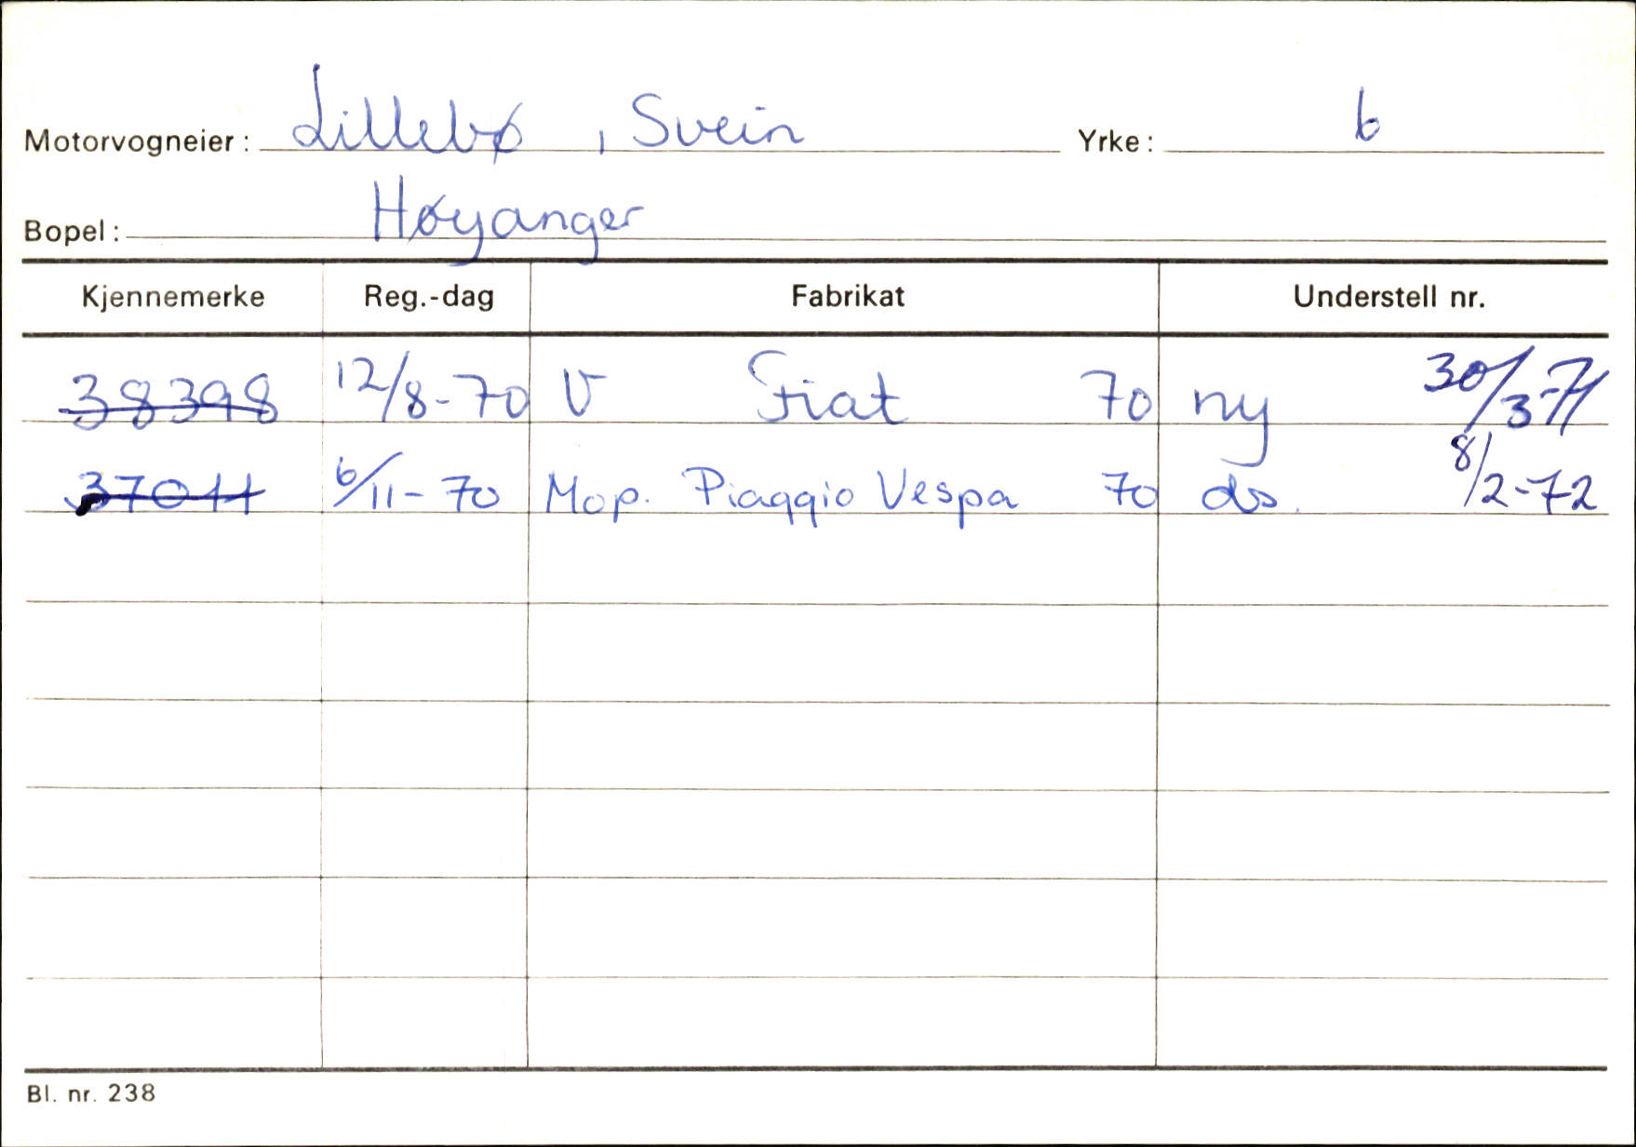 Motorvogneier: Lillebø, Svein Yrke: b
Bopel: Høyanger
Kjennemerke Reg.-dag Fabrikat Understell nr.
38398 12/8-70 V Fiat 70 ny 30/3-71
37011 6/11-70 Mop. Piaggio Vespa 70 ds. 8/2-72
Bl. nr. 238